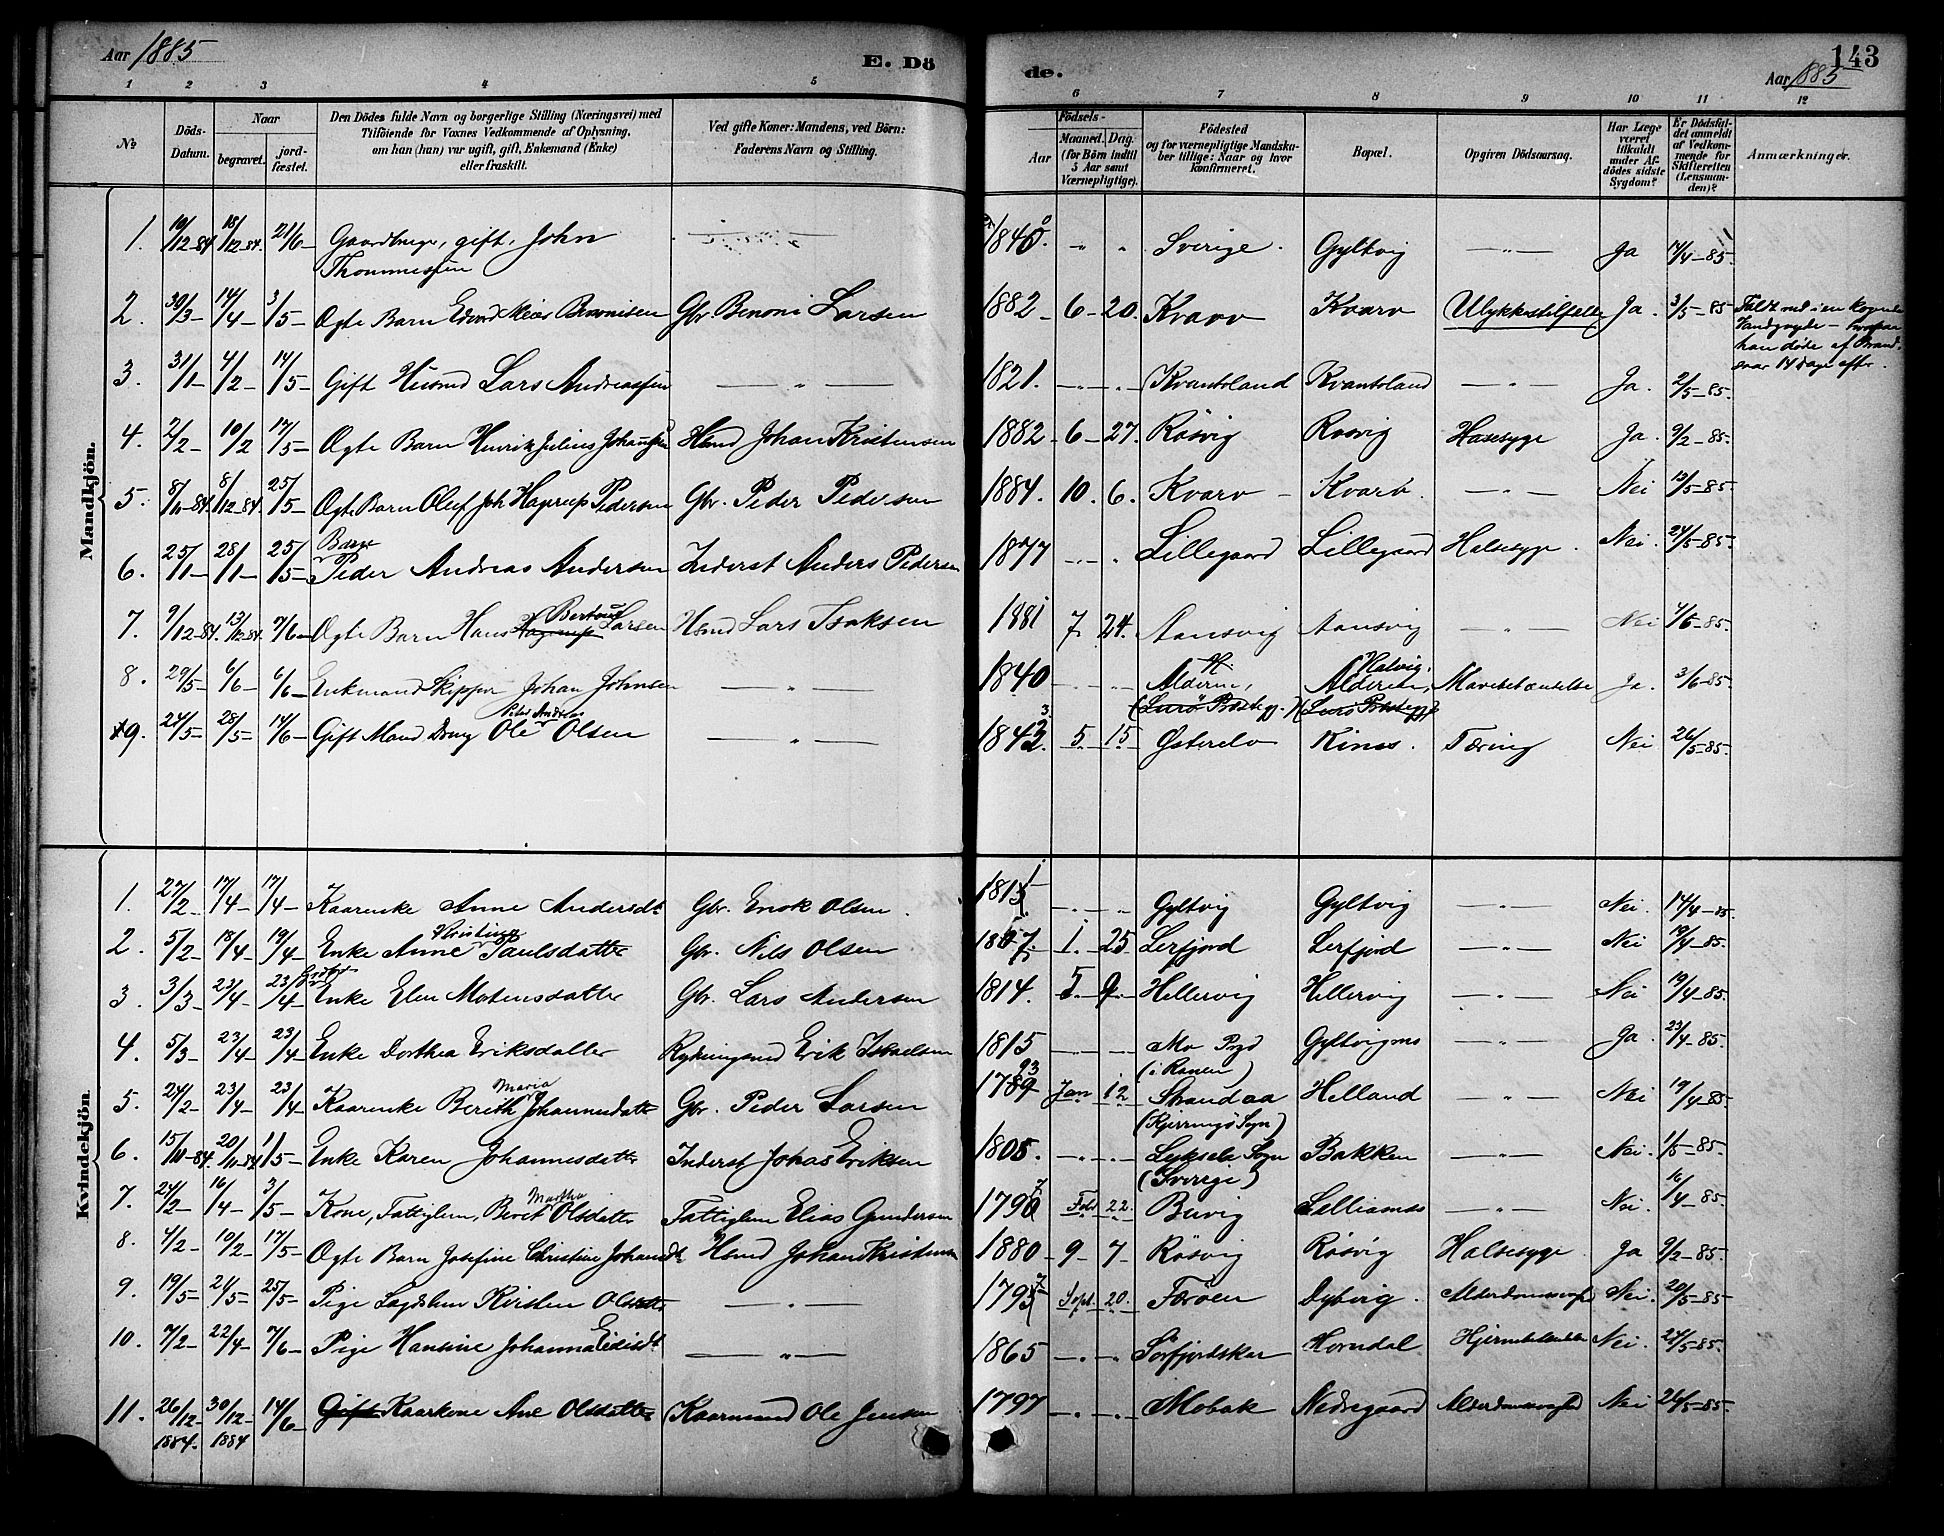 Aar 1885
E. Dö
de.
143
Aar 1885
1 2 3 4 5 6 7 8 9 10 11 12
No
Döds-Datum.
Naar
begravet.
jord-fæstet.
Den Dödes fulde Navn og borgerlige Stilling (Næringsvei) med
Tilföiende for Voxnes Vedkommende af Oplysning,
om han (hun) var ugift, gift, Enkemand (Enke)
eller fraskilt.
Ved gifte Koner: Mandens, ved Börn:
Faderens Navn og Stilling.
Födsels-
Aar
Maaned. Dag.
(for Börn indtil
5 Aar samt
Værnepligtige).
Födested
og for værnepligtige Mandska-
ber tillige: Naar og hvor
konfirmeret.
Bopæl.
Opgiven Dödsaarsag.
Har Læge
været
tilkaldt
under Af-
dödes sidste
Sygdom?
Er Dödsfal-
det anmeldt
af Vedkom-
mende for
Skifteretten
(Lensman-
den)?
Anmærkninger.
Mandkjön.
1. 10/12-84. 18/12-84. 21/6- Gaardbruger, gift, John Thommessen 1840. " " Sverige. Gyltvig —"— Ja 17/4-85.
2. 30/3- 14/4- 3/5- Ægte Barn Edvard Meier Benonisen Gbr Benoni Larsen 1882- 6- 20. Kvarv Kvarv Ulykkestilfælde Ja. 3/5-85 Faldt ned i en kogende Vandgryde - hvorpaa han døde af Brandsaar 14 dage efter.
3. 31/1- 4/2- 14/5- Gift Husmd Lars Andreassen —"— 1821. —"— Kvantoland Kvantoland —"— Ja. 2/5-85.
4. 2/2- 10/2 17/5- Ægte Barn Henrik Julius Johansen Hsmd Johan Kristensen 1882- 6- 27. Rösvig Rösvig Halsesyge Ja. 9/2-85.
5. 8/11-84. 8/12-84. 25/5- Ægte Barn Oluf Joh Hagerup Pedersen Gbr. Peder Pedersen 1884. 10. 6. Kvarv - Kvarv. —"— Nei 13/5-85.
6. 25/1- 28/1- 25/5- Barn Peder Andreas Andersen Inderst Anders Pedersen 1877 —"— Lillegaard Lillegaard Halsesyge. Nei. 24/5-85.
7. 9/12-84. 13/12-84. 7/6- Ægte Barn Hans Hagerup Berteus Larsen Hsmd Lars Isaksen 1881 7. 24. Aansvig Aansvig —"— Nei 7/6-85.
8. 29/5- 6/6- 6/6- Enkemand Skipper Johan Johnsen —"— 1840 —"— Alderen, (Lurö Præstegj.) Alderen, Halvig. (Lurö Præstegj) Mavebetændelse Ja. 3/6-85.
9. 24/5- 28/5- 14/6- Gift Mand Dreng Ole Peter Andreas Olsen —"— 1843. 5. 15 Østerelv Kines. Tæring Nei 26/5-85.
Kvindekjön.
1. 27/2- 17/4- 17/4- Kaarenke Anne Andersdt Gbr. Enok Olsen. 1811 —"— Gyltvig Gyltvig —"— Nei. 14/4-85.
2. 5/2- 18/4- 19/4- Enke Anne Kristine Paulsdatter Gbr. Nils Olsen 1807. 1. 25 Lerfjord Lerfjord —"— Nei 19/4-85.
3. 3/3- 23/4- 23/4- Enke Elen Motensdatter Gbr. Lars Andersen 1814. 5- 9. Hellervig Hellervig —"— Nei 19/4-85.
4. 5/3- 23/4- 23/4- Enke Dorthea Eriksdatter Rydningsmd Erik Israelsen 1815 —"— Mo Pgd (i Ranen) Gyltvigmo —"— Ja. 23/4-85.
5. 24/2- 23/4- 23/4- Kaarenke Bereth Maria Johannesdatter Gbr. Peder Larsen 1789 93 Jan 12 Strandaa (Kjerringö Sogn) Helland —"— Nei 19/4-85.
6. 15/11-84. 20/11-84. 1/5- Enke Karen Johannesdatter Inderst Johas Eriksen 1805. —"— Lyksele Sogn (Sverige) Bakken —"— Nei. 1/5-85
7. 24/2- 16/4- 3/5- Kone, Fattiglem, Berit Martha Olsdatter Fattiglem Elias Gundersen 1790 7 Feb 22. Bervig Lilliamo —"— Nei. 16/4-85
8. 4/2- 10/2- 17/5- Ægte Barn Josefine Christine Johansdt Hsmd Johan Kristensen 1880- 9- 7- Rösvig Rösvig Halsesyge. Ja 9/2-85.
9. 19/5- 21/5- 25/5- Pige Lægdslem Kirsten Olsdatter —"— 1795 7 Sept. 20. Færöen Dybvig. Alderdomssvaghed Nei. 20/5-85
10. 7/2- 22/4- 7/6- Pige Hansine Johanna Eidisdt —"— 1865 —"— Sörfjordskar Horndal Hjernebetændelse Nei. 24/5-85.
11. 26/12-1884. 30/12-1884 14/6- Gift Kaarkone Ane Olsdatter Kaarmand Ole Jensen 1797 —"— Mobak Nedregaard Alderdomssvaghed Nei 26/5-85.